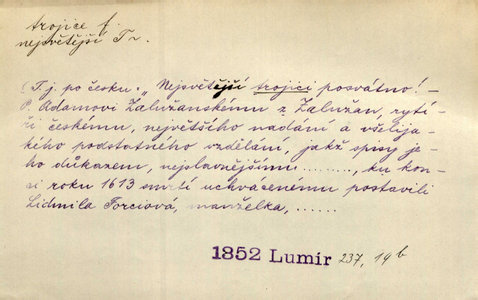 trojice f.
největější Tr.
(T. j. po česku: „Největější trojici posvátno! –
P. Adamovi Zalužanskému z Zalužan, rytí-
ři českému, největšího nadání a všelija-
kého podstatného vzdělání, jakž spisy je-
ho důkazem, nejslavnějšímu ........., ku kon-
ci roku 1613 smrtí uchvácenému postavili
Lidmila Torciová, manželka, ......
1852 Lumír 237, 19b